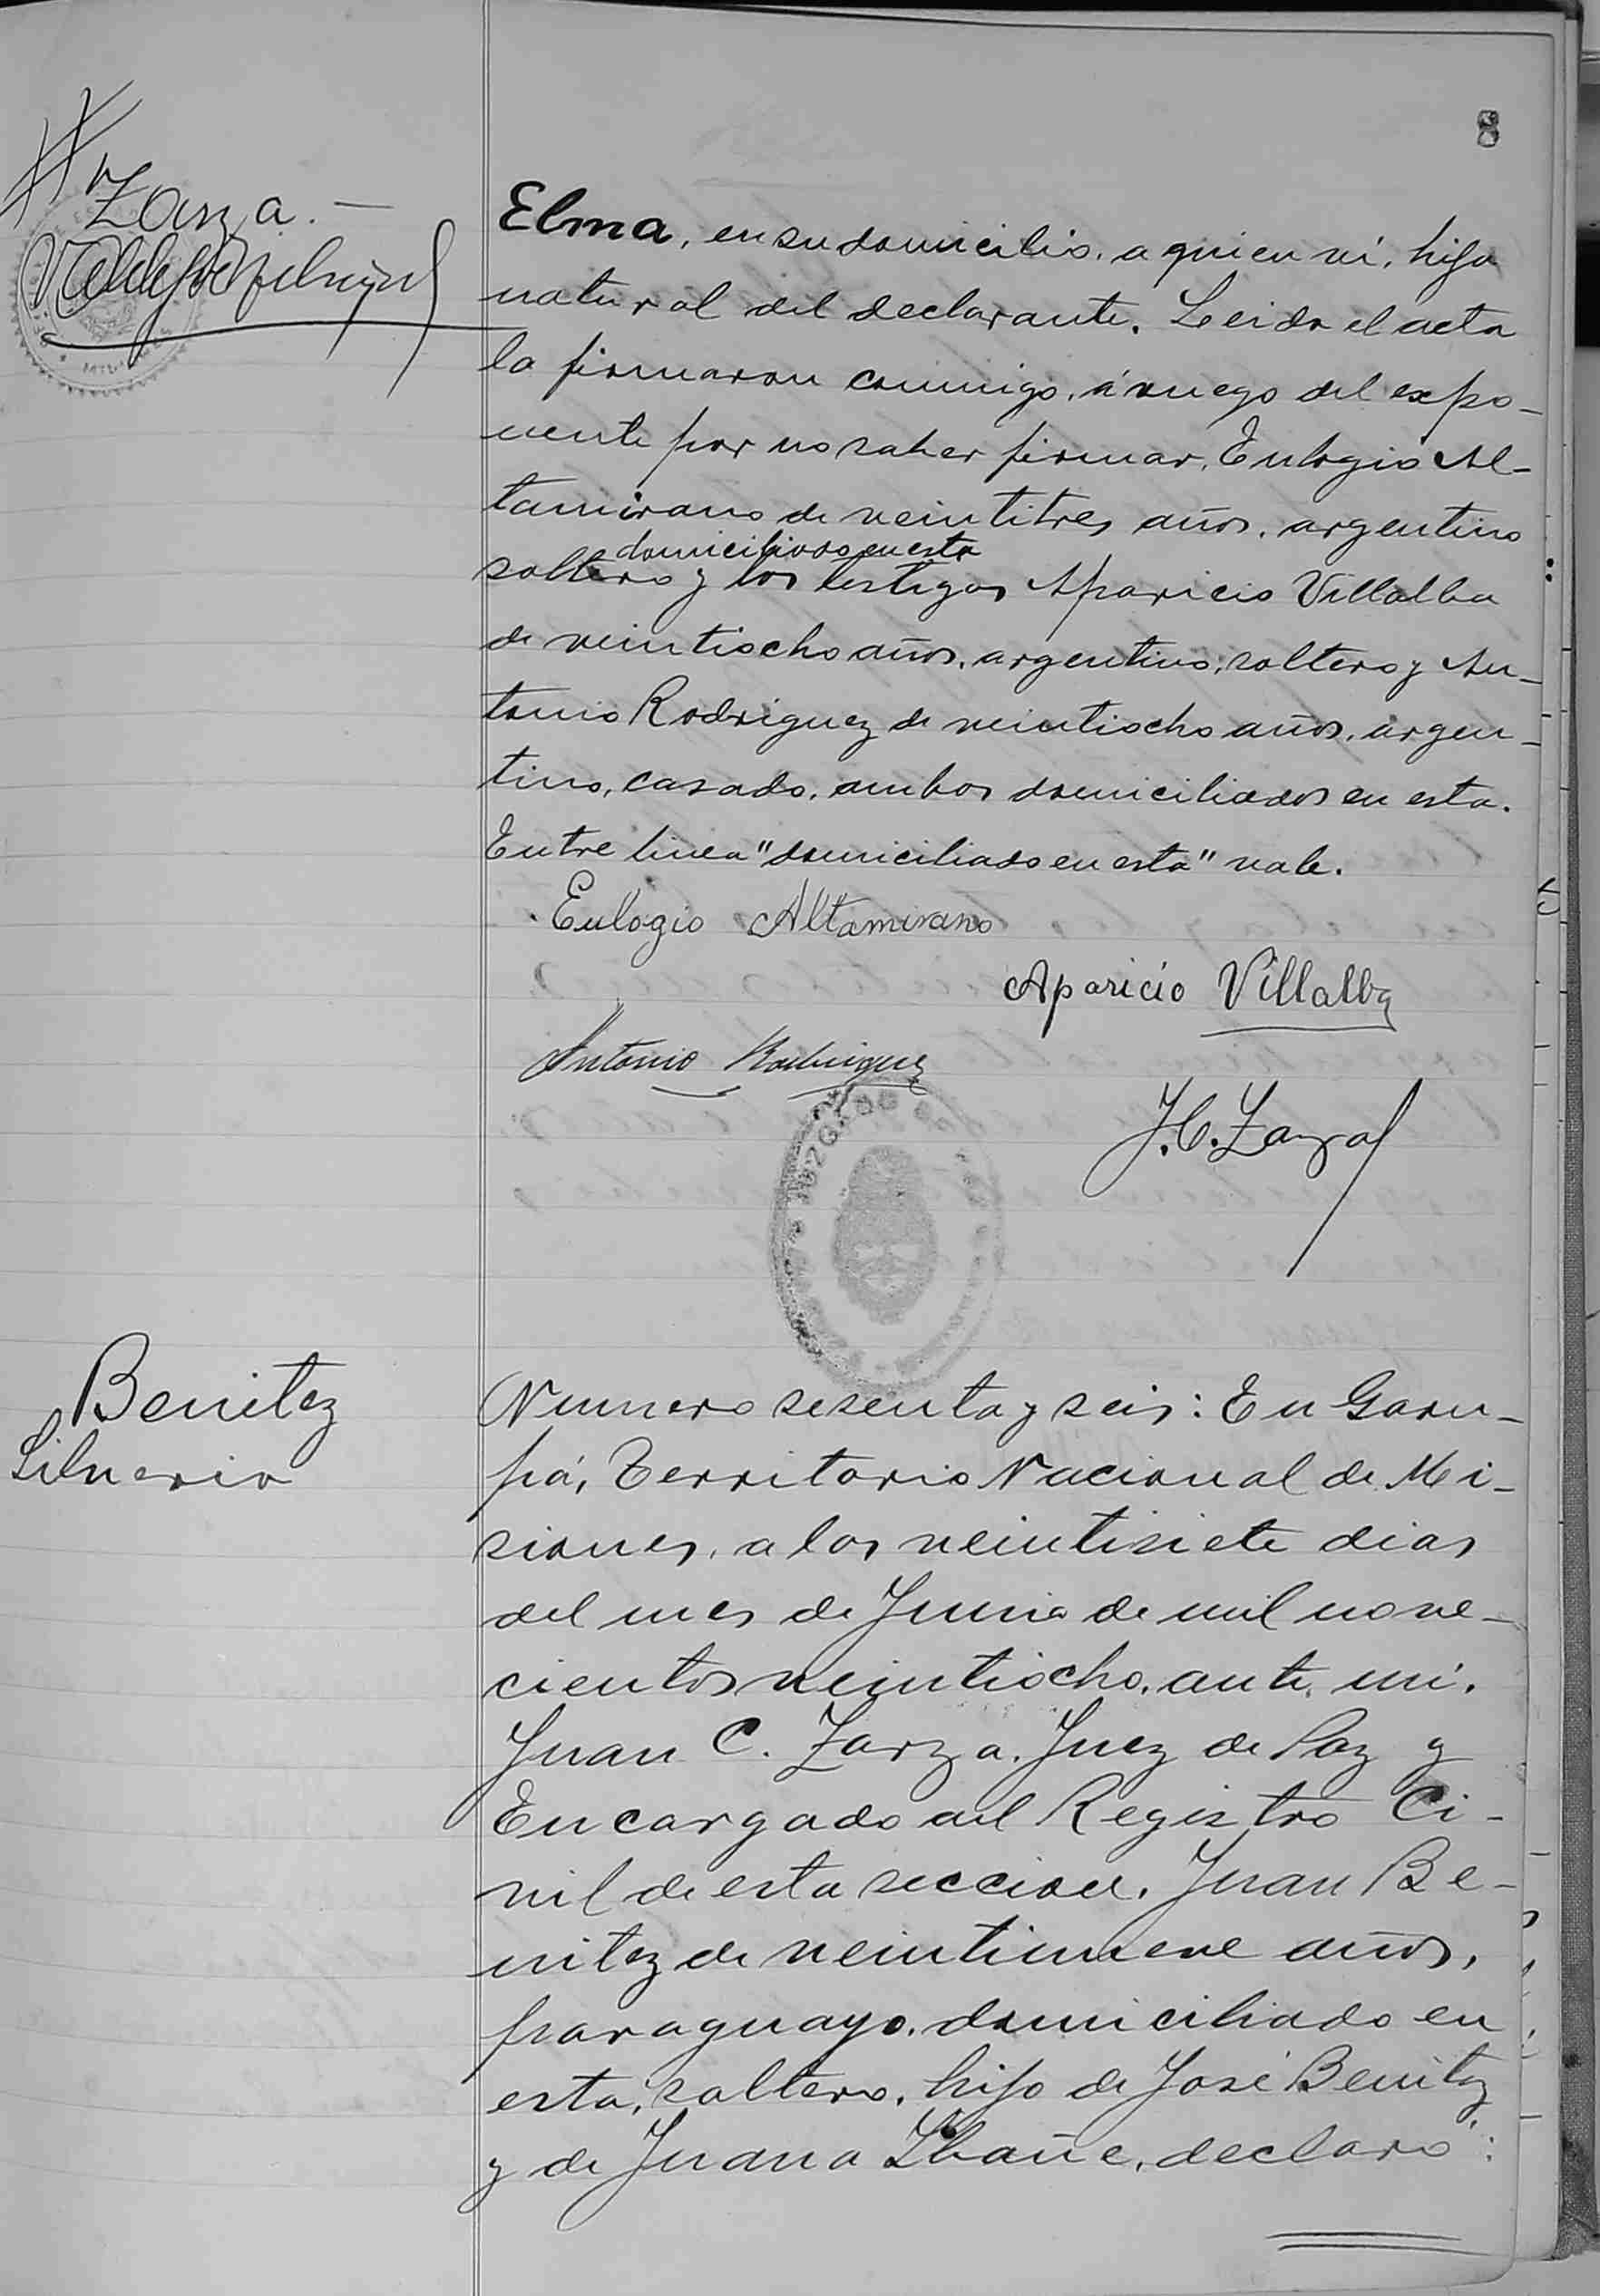 8
Zarza.—
Elma, en su domicilio, a quien ví, hija
natural del declarante. Leida el acta
la firmaron conmigo, á ruego del expo-
nente por no saber firmar, Eulogio Al-
tamirano de veintitres años, argentino
domiciliado en esta
soltero y los testigos Aparicio Villalba
de veintiocho años, argentino, soltero y An-
tonio Rodriguez de veintiocho años, argen-
tino, casado, ambos domiciliados en esta.
Entre linea "domiciliado en esta" vale.
Eulogio Altamirano
Aparicio Villalba
Antonio Rodriguez
J.C. Zarza
JUZGADO
Benitez
Silveria
Numero sesenta y seis: En Garu-
pá, Territorio Nacional de Mi-
siones, a los veintisiete dias
del mes de Junio de mil nove-
cientos veintiocho, ante mí,
Juan C. Zarza, Juez de Paz y
Encargado del Registro Ci-
vil de esta seccion, Juan Be-
nitez de veintinueve años,
paraguayo, domiciliado en
esta, soltero, hijo de José Benitez
y de Juana Ibañe, declaró: